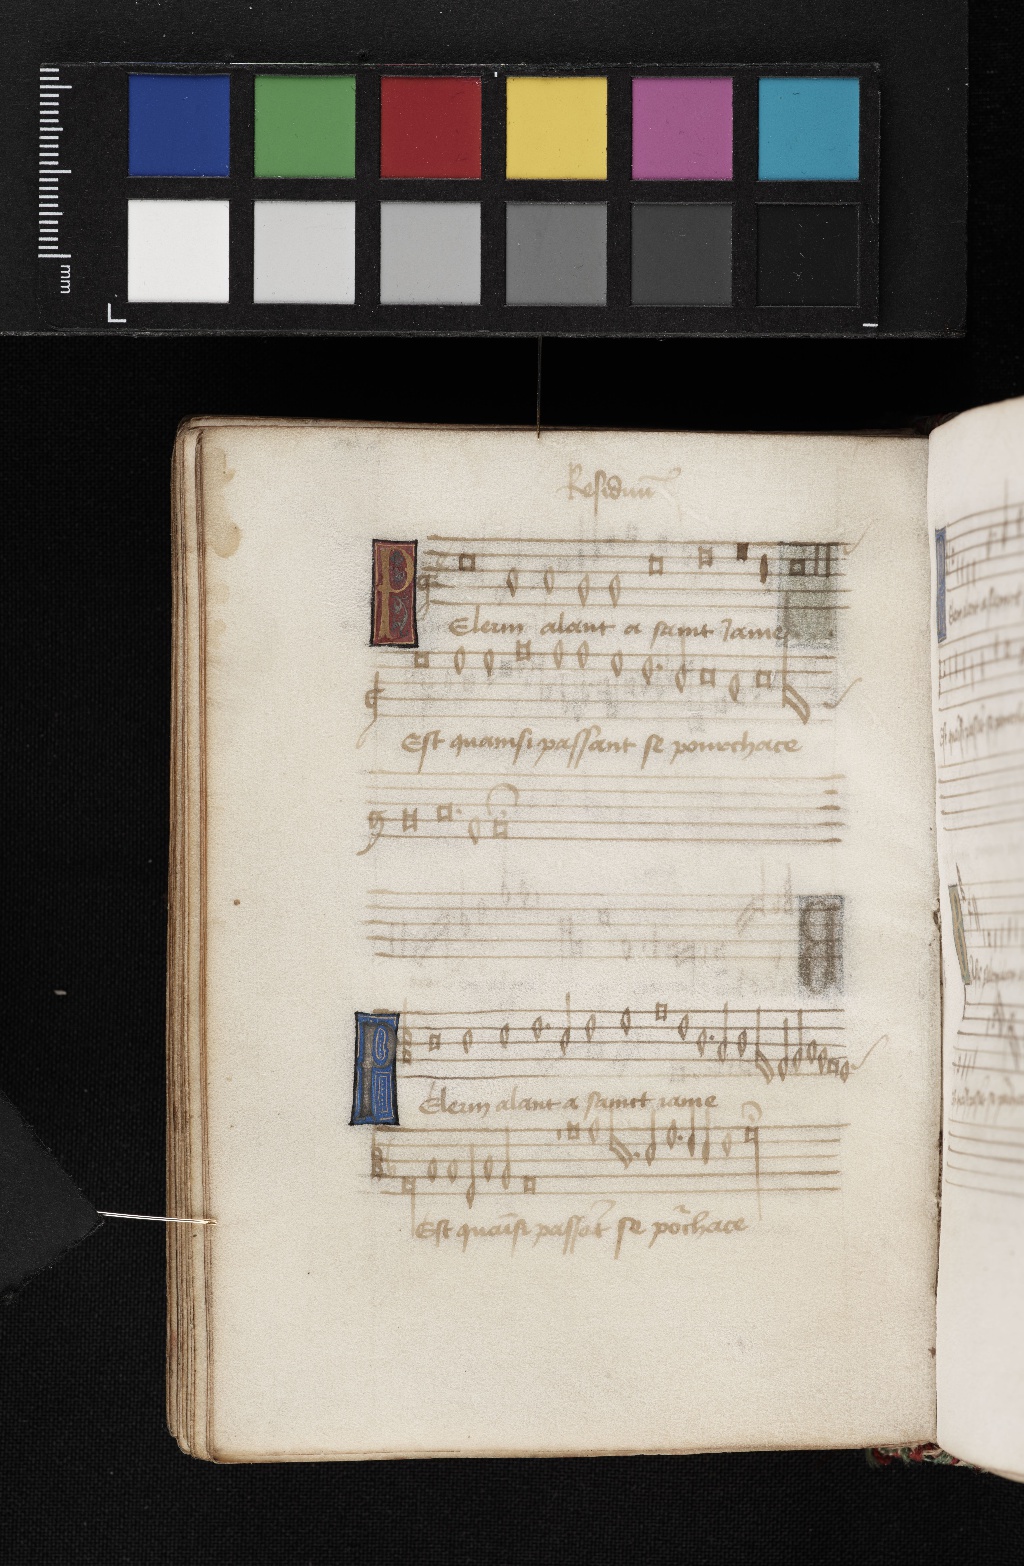 mm
Residuum
Pelerin alant a saint Jame
Est quainsi passant se pourchace
Pelerin alant a sainct iame
Est quaīsi passāt se pōchace